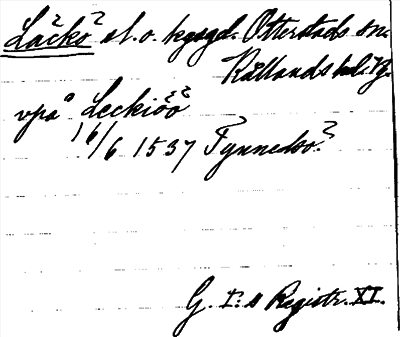 Läckö sl. o. kgsgd. Otterstads sn.
Kållands hd. Vg.
vpå Leckiöö
16/6 1537 Tynnedso.
G. I:s Registr. XI.